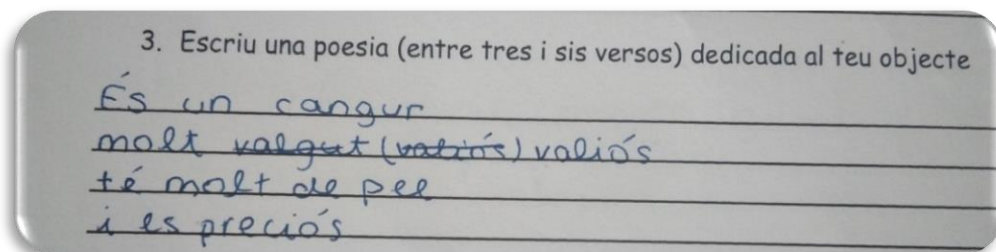 3. Escriu una poesia (entre tres i sis versos) dedicada al teu objecte
És un cangur
molt valgut (valiós) valiós
té molt de pel
i es preciós